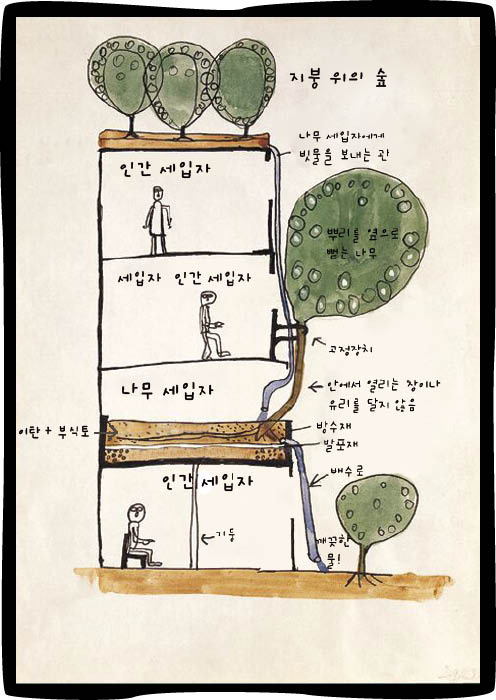 지붕 위의 숲
나무 세입자에게
빗물을 보내는 관
인간 세입자
뿌리를 옆으로
뻗는 나무
세입자 인간 세입자
고정장치
안에서 열리는 창이나
유리를 달지 않음
나무 세입자
이탄 + 부식토
방수재
발포재
배수로
인간 세입자
기둥
깨끗한
물!